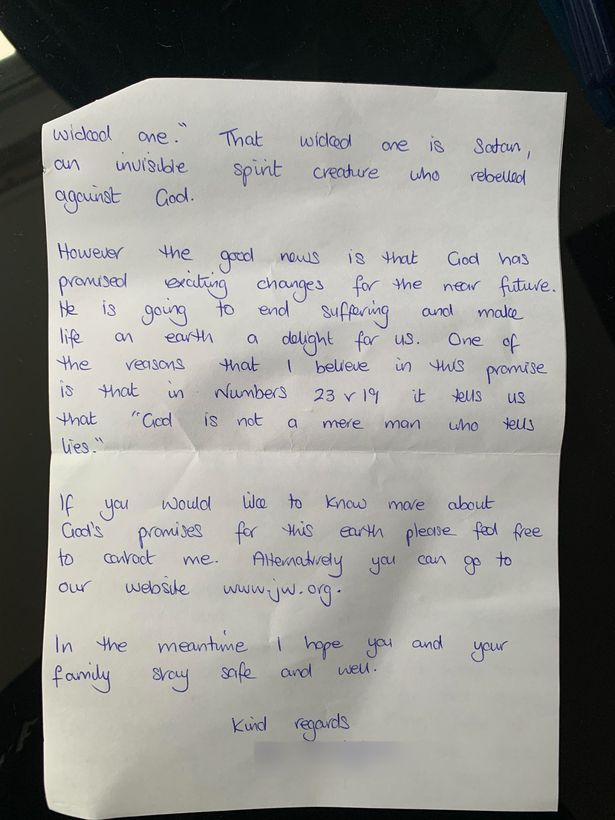 wicked one." That wicked one is Satan,
an invisible spirit creature who rebelled
against God.
However the good news is that God has
promised exciting changes for the near future.
He is going to end suffering and make
life on earth a delight for us. One of
the reasons that I believe in this promise
is that in Numbers 23 v 19 it tells us
that "God is not a mere man who tells
lies."
If you would like to know more about
God's promises for this earth please feel free
to contact me. Alternatively you can go to
our website www.jw.org.
In the meantime I hope you and your
family stay safe and well.
Kind regards